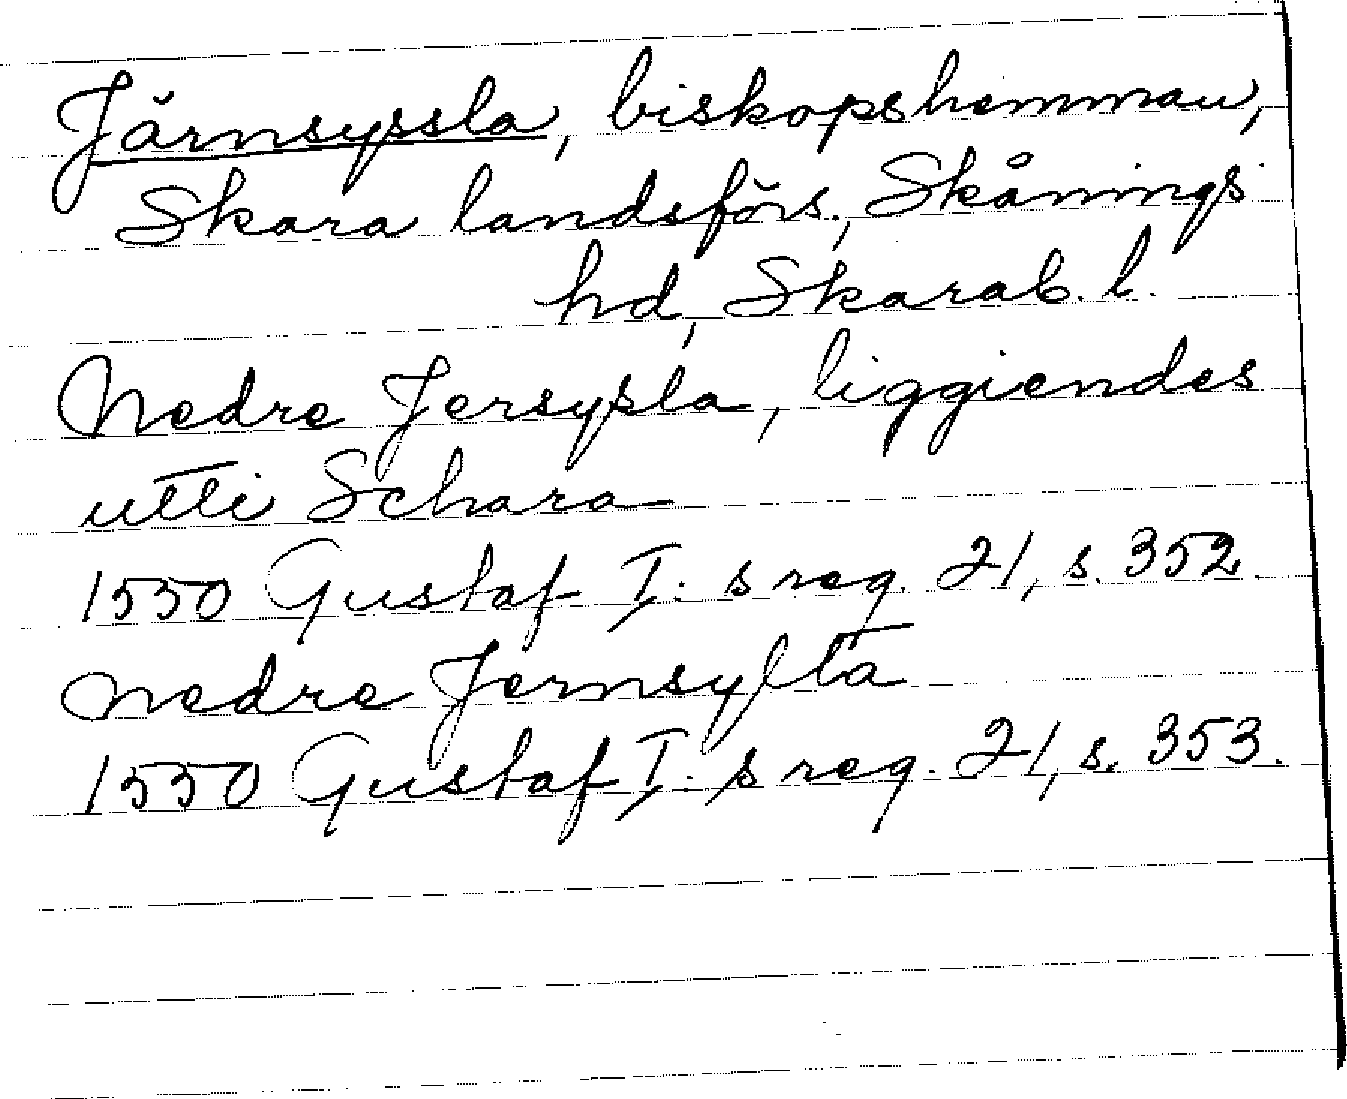 Järnsyssla, biskopshemman,
Skara landsförs., Skånings
hd, Skarab. l.
Nedre Jersysla, liggiendes
utti Schara
1550 Gustaf I:s reg. 21, s. 352.
nedre Jernsylta
1550 Gustaf I:s reg. 21, s. 353.